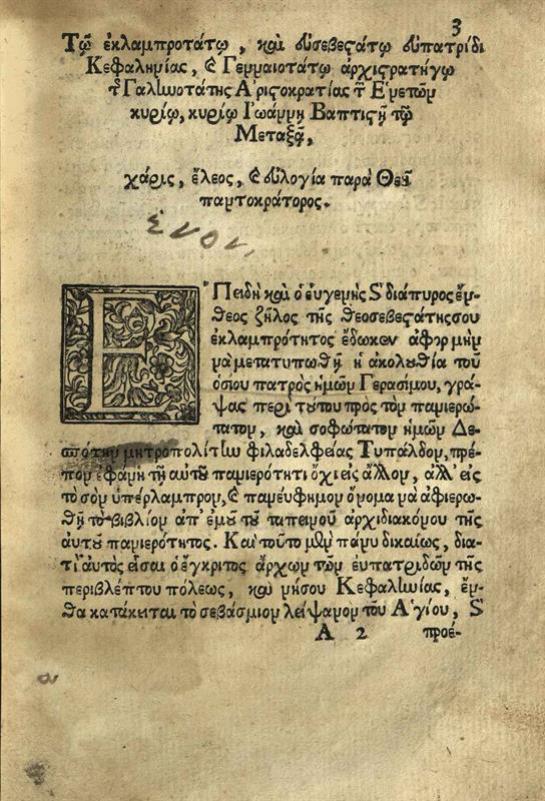 3
Τῷ ἐκλαμπροτάτῳ, καὶ εὐσεβεστάτῳ εὐπατρίδι
Κεφαληνίας, & Γενναιοτάτῳ ἀρχιστρατήγῳ
τῆς Γαληνοτάτης Ἀριστοκρατίας τῶν Ἐνετῶν
κυρίῳ, κυρίῳ Ἰωάννῃ Βαπτιστῇ τῷ
Μεταξᾷ,
χάρις, ἔλεος, & εὐλογία παρὰ Θεοῦ
παντοκράτορος.
ἘΠειδὴ καὶ ὁ εὐγενὴς & διάπυρος ἔν-
θεος ζῆλος τῆς θεοσεβεστάτης σου
ἐκλαμπρότητος ἔδωκεν ἀφορμὴν
νὰ μετατυπωθῇ ἡ ἀκολουθία τοῦ
ὁσίου πατρὸς ἡμῶν Γερασίμου, γρά-
ψας περὶ τούτου πρὸς τὸν πανιερώ-
τατον, καὶ σοφώτατον ἡμῶν Δε-
σπότην μητροπολίτην φιλαδελφείας Τυπάλδον, πρέ-
πον ἐφάνη τῇ αὐτοῦ πανιερότητι ὄχι εἰς ἄλλον, ἀλλ' εἰς
τὸ σὸν ὑπέρλαμπρον, & πανεύφημον ὄνομα νὰ ἀφιερω-
θῇ τὸ βιβλίον ἀπ' ἐμοῦ τοῦ ταπεινοῦ ἀρχιδιακόνου τῆς
αὐτοῦ πανιερότητος. Καὶ τοῦτο μὲν πάνυ δικαίως, δια-
τὶ αὐτὸς εἶσαι ὁ ἔγκριτος ἄρχων τῶν εὐπατριδῶν τῆς
περιβλέπτου πόλεως, καὶ νήσου Κεφαλληνίας, ἔν-
θα κατάκειται τὸ σεβάσμιον λείψανον τοῦ Ἁγίου, &
Α 2 προέ-